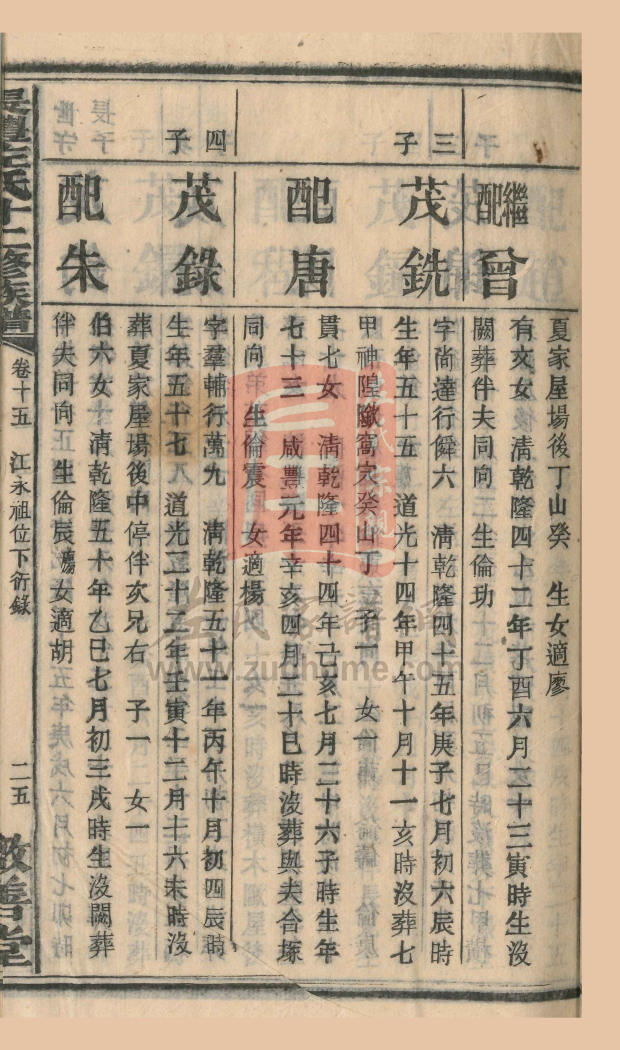 夏家屋場後丁山癸 生女適廖
繼配曾
有文女 清乾隆四十二年丁酉六月二十三寅時生沒
闕葬伴夫同向 生倫玏
三子
茂銑
字尚達行舜六 清乾隆四十五年庚子七月初六辰時
生年五十五 道光十四年甲午十月十一亥時沒葬七
甲神隍 窩 癸山丁 子一 女一
配唐
貫七女 清乾隆四十四年己亥七月二十六子時生年
七十三 咸豐元年辛亥四月二十巳時沒葬與夫合塚
同向 生倫震 女適楊
四子
茂錄
字羣輔行萬九 清乾隆五十一年丙午十月初四辰時
生年五十七 道光二十二年壬寅十二月十六未時沒
葬夏家屋場後中停伴次兄右 子一 女一
配朱
伯六女 清乾隆五十年乙巳七月初三戌時生沒闕葬
伴夫同向 生倫辰 女適胡
氏十二修族譜
卷十五 江永祖位下衍錄
二五
敬善堂
www.zuqihome.com